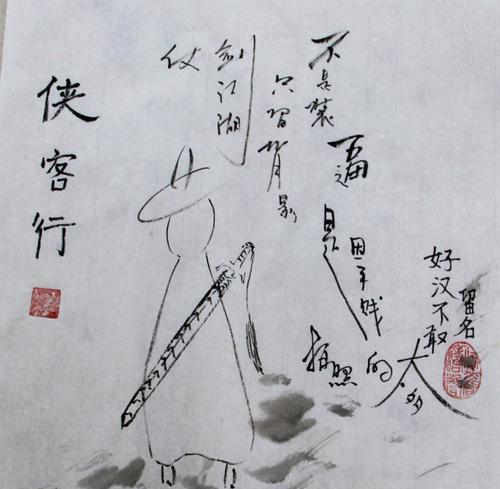 侠客行
仗剑江湖
只留背影
不是装逼
是因手贱
拍照的太多
好汉不敢
留名